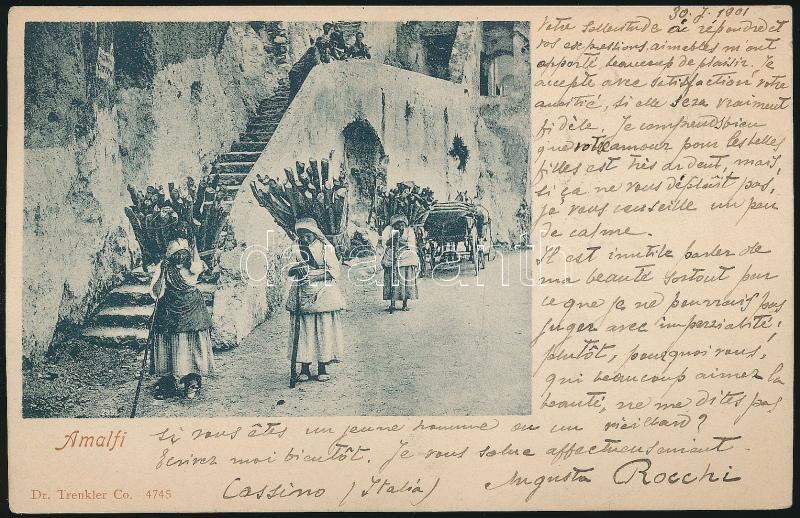 30. 7. 1901
Votre sollicitude à répondre et
vos expressions aimables m'ont
apporté beaucoup de plaisir. Je
accepte avec satisfaction votre
amitié, si elle sera vraiment
fidèle. Je comprends bien
que votre amour pour les belles
filles est très ardent, mais,
si ça ne vous déplaît pas,
je vous conseille un peu
de calme.
Il est inutile parler de
ma beauté surtout par
ce que je ne pourrais pas
juger avec imperziabité;
plutôt, pourquoi vous,
qui beaucoup aimez la
beauté, ne me dites pas
si vous êtes un jeune homme ou un vieillard?
Écrivez moi bientôt. Je vous salue affectueusement.
Cassino (Italia) Augusta Rocchi
Amalfi
Dr. Trenkler Co. 4745
darabanth